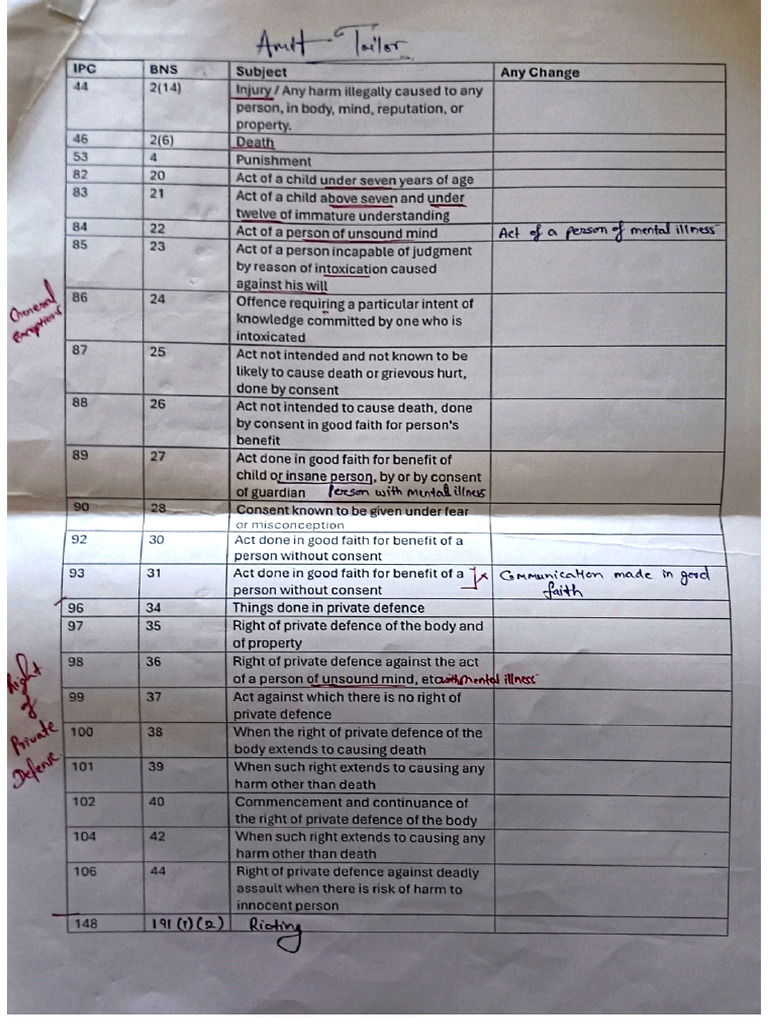 Amit Tailor
IPC BNS Subject Any Change
44 2(14) Injury / Any harm illegally caused to any
person, in body, mind, reputation, or
property.
46 2(6) Death
53 4 Punishment
82 20 Act of a child under seven years of age
83 21 Act of a child above seven and under
twelve of immature understanding
84 22 Act of a person of unsound mind Act of a person of mental illness
85 23 Act of a person incapable of judgment
by reason of intoxication caused
against his will
General
Exceptions
86 24 Offence requiring a particular intent of
knowledge committed by one who is
intoxicated
87 25 Act not intended and not known to be
likely to cause death or grievous hurt,
done by consent
88 26 Act not intended to cause death, done
by consent in good faith for person's
benefit
89 27 Act done in good faith for benefit of
child or insane person, by or by consent
of guardian Person with mental illness
90 28 Consent known to be given under fear
or misconception
92 30 Act done in good faith for benefit of a
person without consent
93 31 Act done in good faith for benefit of a Communication made in good
person without consent faith
96 34 Things done in private defence
97 35 Right of private defence of the body and
of property
98 36 Right of private defence against the act
of a person of unsound mind, etc with mental illness
Right
of
Private
Defense
99 37 Act against which there is no right of
private defence
100 38 When the right of private defence of the
body extends to causing death
101 39 When such right extends to causing any
harm other than death
102 40 Commencement and continuance of
the right of private defence of the body
104 42 When such right extends to causing any
harm other than death
106 44 Right of private defence against deadly
assault when there is risk of harm to
innocent person
148 191 (1) (2) Rioting